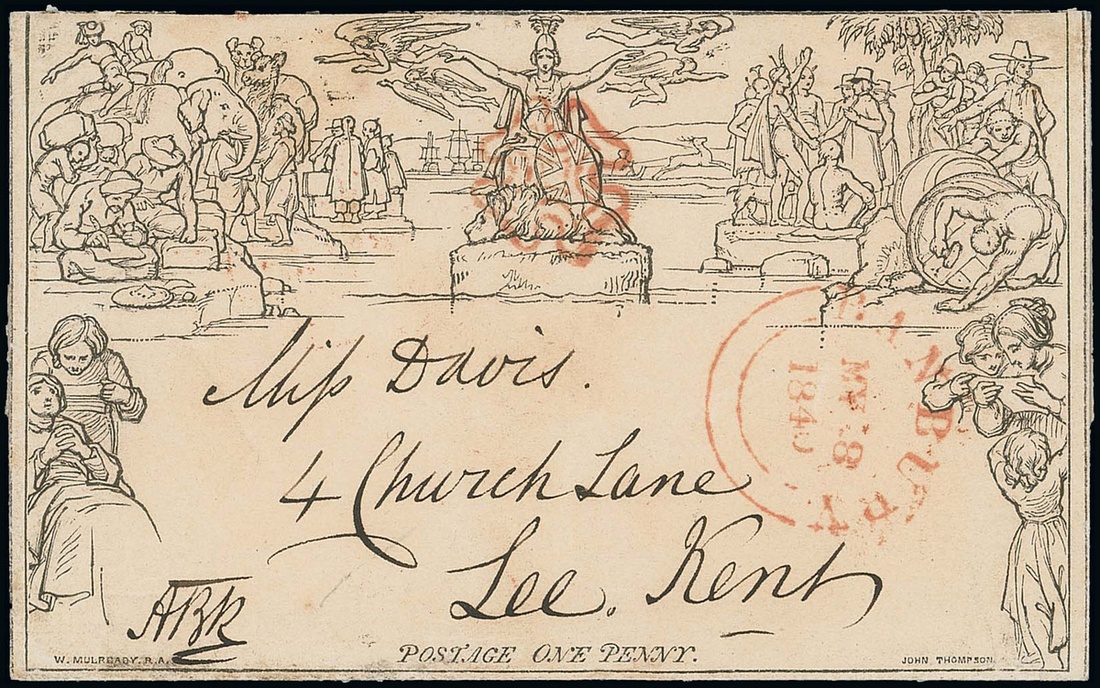 Miss Davis.
4 Church Lane
Lee. Kent
ABR
BANBURY
MY 8
1840
W. MULREADY. R.A.
POSTAGE ONE PENNY.
JOHN THOMPSON